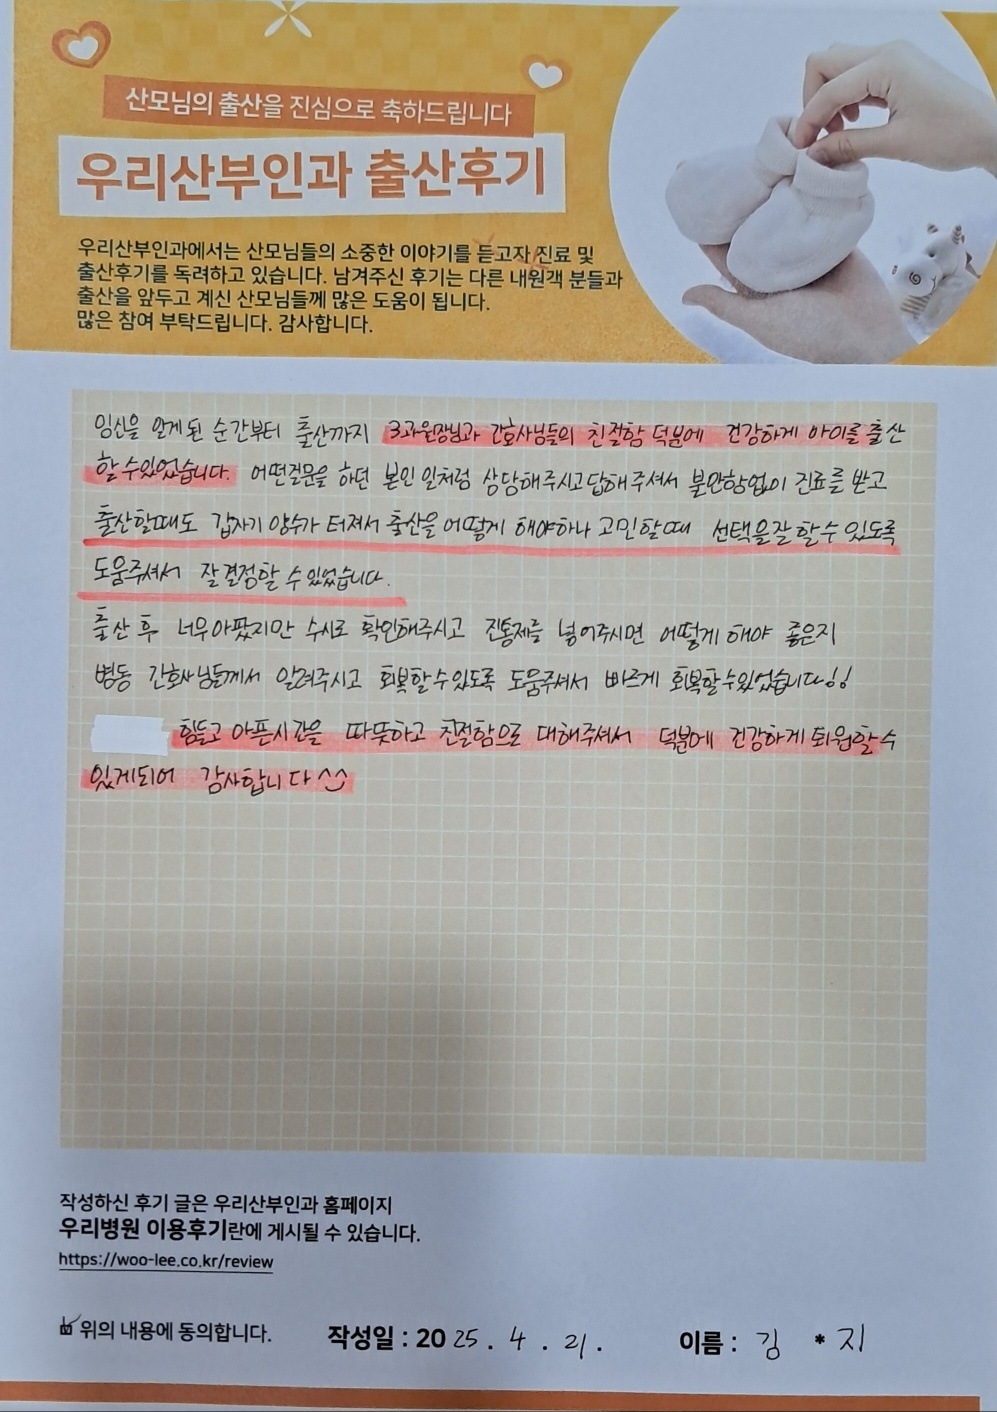 산모님의 출산을 진심으로 축하드립니다
우리산부인과 출산후기
우리산부인과에서는 산모님들의 소중한 이야기를 듣고자 진료 및
출산후기를 독려하고 있습니다. 남겨주신 후기는 다른 내원객 분들과
출산을 앞두고 계신 산모님들께 많은 도움이 됩니다.
많은 참여 부탁드립니다. 감사합니다.
임신을 알게된 순간부터 출산까지 3과원장님과 간호사님들의 친절함 덕분에 건강하게 아이를 출산
할 수있었습니다. 어떤질문을 하던 본인 일처럼 상담해주시고답해주셔서 불안함없이 진료를 받고
출산할때도 갑자기 양수가 터져서 출산을 어떻게 해야하나 고민할때 선택을잘 할수 있도록
도움주셔서 잘결정할 수 있었습니다.
출산 후 너무아팠지만 수시로 확인해주시고 진통제를 넣어주시면 어떻게 해야 좋은지
병동 간호사님들께서 알려주시고 회복할수있도록 도움주셔서 빠르게 회복할수있었습니다!!
힘들고 아픈시간을 따뜻하고 친절함으로 대해주셔서 덕분에 건강하게퇴원할수
있게되어 감사합니다^^
작성하신 후기 글은 우리산부인과 홈페이지
우리병원 이용후기란에 게시될 수 있습니다.
https://woo-lee.co.kr/review
위의 내용에 동의합니다. 작성일 : 2025. 4. 21. 이름 : 김 * 지